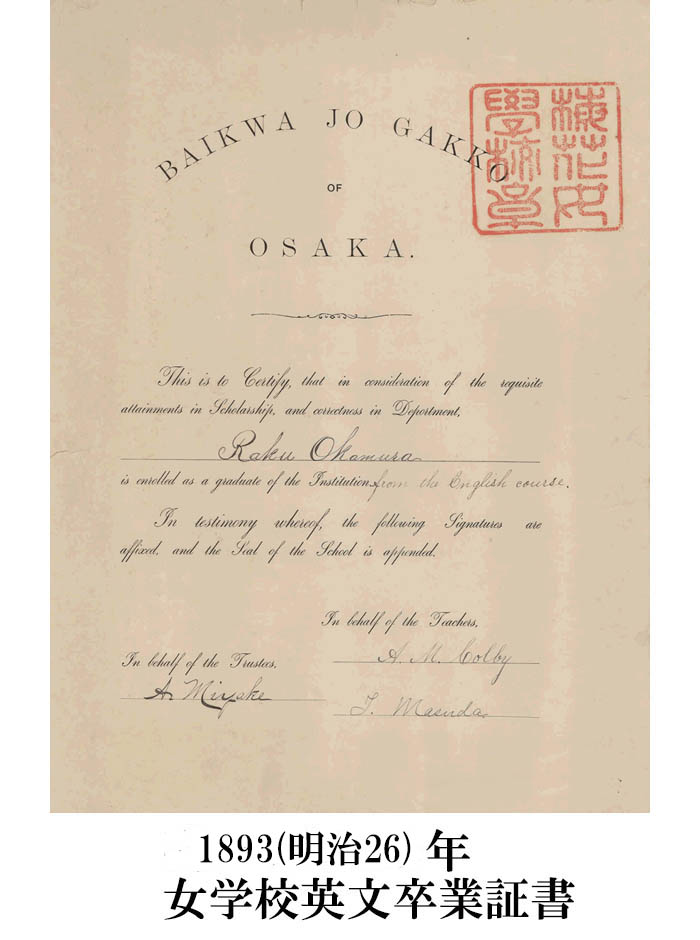 BAIKWA JO GAKKO
OF
OSAKA.
梅花女
學校章
This is to Certify, that in consideration of the requisite
attainments in Scholarship, and correctness in Deportment,
Raku Okamura
is enrolled as a graduate of the Institution from the English course.
In testimony whereof, the following Signatures are
affixed, and the Seal of the School is appended.
In behalf of the Teachers,
A. M. Colby
In behalf of the Trustees,
A. Miyake
T. Masuda
1893(明治26) 年
女学校英文卒業証書